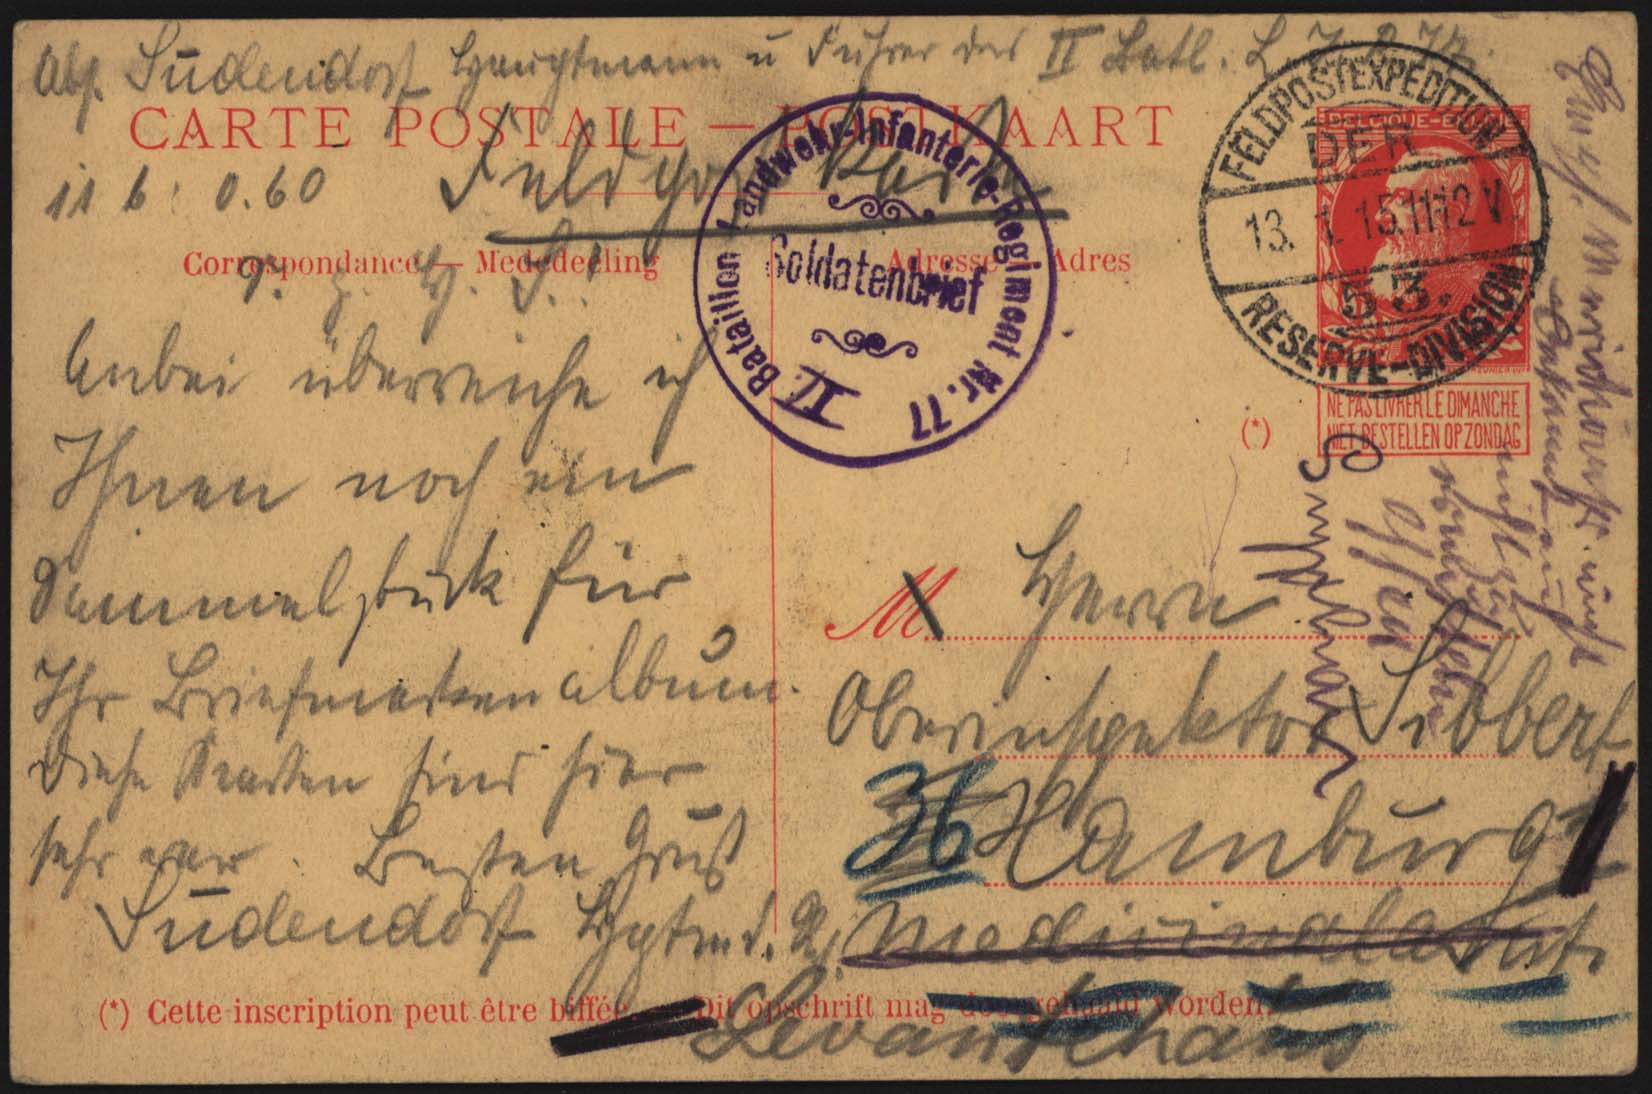 Abs. Südendorf Hauptmann u Führer des II Batl. L. I. R. 77.
CARTE POSTALE — POSTKAART
Feldpostkarte
Correspondance — Mededeeling
Adresse — Adres
II. Bataillon Landwehr-Infanterie-Regiment Nr. 77
Soldatenbrief
FELDPOSTEXPEDITION
DER
13. 1. 15. 11-12 V.
53.
RESERVE-DIVISION
BELGIQUE-BELGIË
NE PAS LIVRER LE DIMANCHE
NIET BESTELLEN OP ZONDAG
(*)
Anbei überreiche ich
Ihnen noch ein
Sammelstück für
Ihr Briefmarkenalbum.
Diese Karten sind hier
sehr rar. Besten Gruß
Südendorf Hptm d. L.
M Herrn
Oberinspektor Sibbert
36 Hamburg 1
Medicinalamt.
Levantehaus
(*) Cette inscription peut être biffée. — Dit opschrift mag doorgehaald worden.